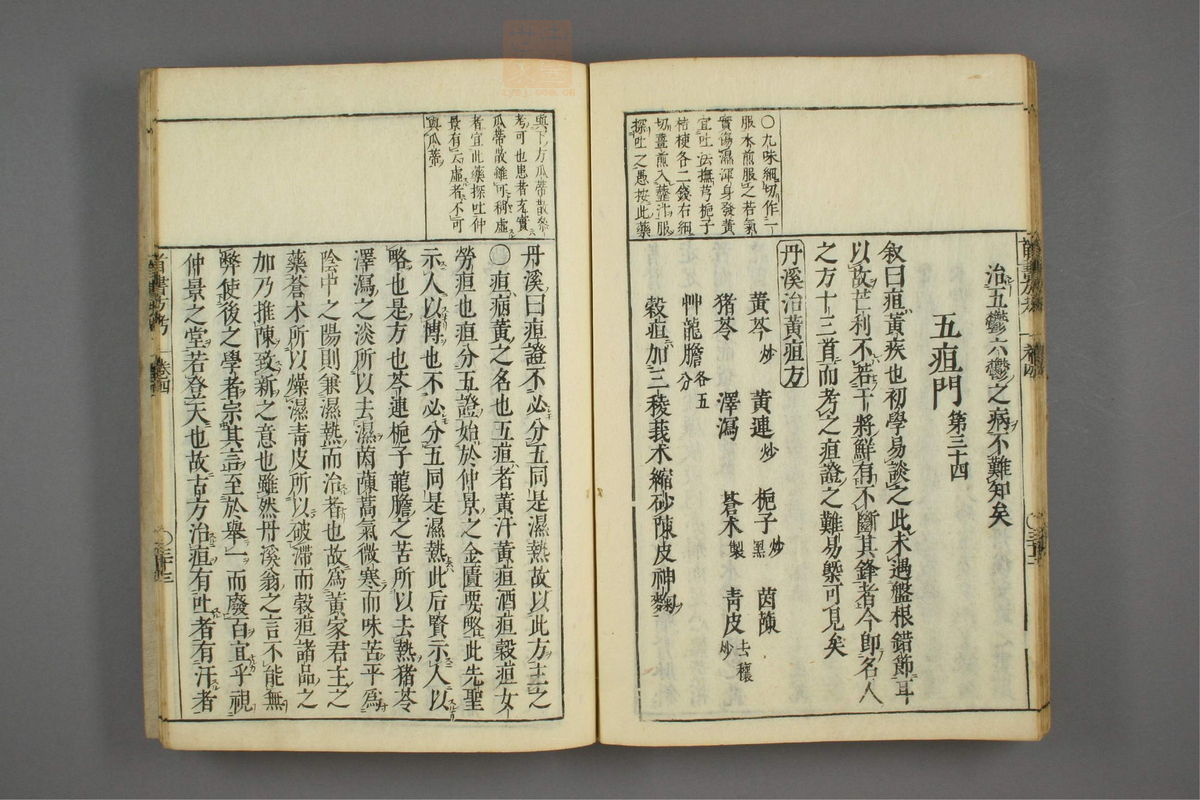 〇九味細切作一
服水煎服之若氣
實傷濕渾身發黃
宜吐法撫芎梔子
桔梗各二錢右細
切薑煎入虀汁服
探吐之愚按此藥
治五鬱六鬱之病不難知矣
五疸門 第三十四
敘曰疸黃疾也初學易談之此未遇盤根錯節耳
以故芒利不若干將鮮有不斷其鋒者今即名人
之方十三首而考之疸證之難易槩可見矣
丹溪治黃疸方
黃芩炒 黃連炒 梔子炒黑 茵蔯
猪苓 澤瀉 蒼朮製 青皮去穰炒
艸龍膽各五分
穀疸加三稜莪朮縮砂陳皮神麴
與下方瓜蒂散叅
考可也患者充實
瓜蒂散雖可稱虛
者宜此藥探吐仲
景有云虛者不可
與瓜蒂
丹溪曰疸證不必分五同是濕熱故以此方主之
〇疸病黃之名也五疸者黃汗黃疸酒疸穀疸女
勞疸也疸分五證始於仲景之金匱要略此先聖
示人以博也不必分五同是濕熱此后賢示人以
略也是方也芩連梔子龍膽之苦所以去熱猪苓
澤瀉之淡所以去濕茵蔯蒿氣微寒而味苦平爲
陰中之陽則兼濕熱而治者也故爲黃家君主之
藥蒼朮所以燥濕青皮所以破滯而穀疸諸品之
加乃推陳致新之意也雖然丹溪翁之言不能無
弊使後之學者宗其言至於舉一而廢百宜乎視
仲景之堂若登天也故古方治疸有吐者有汗者
醫書方考 卷四 〇三十三